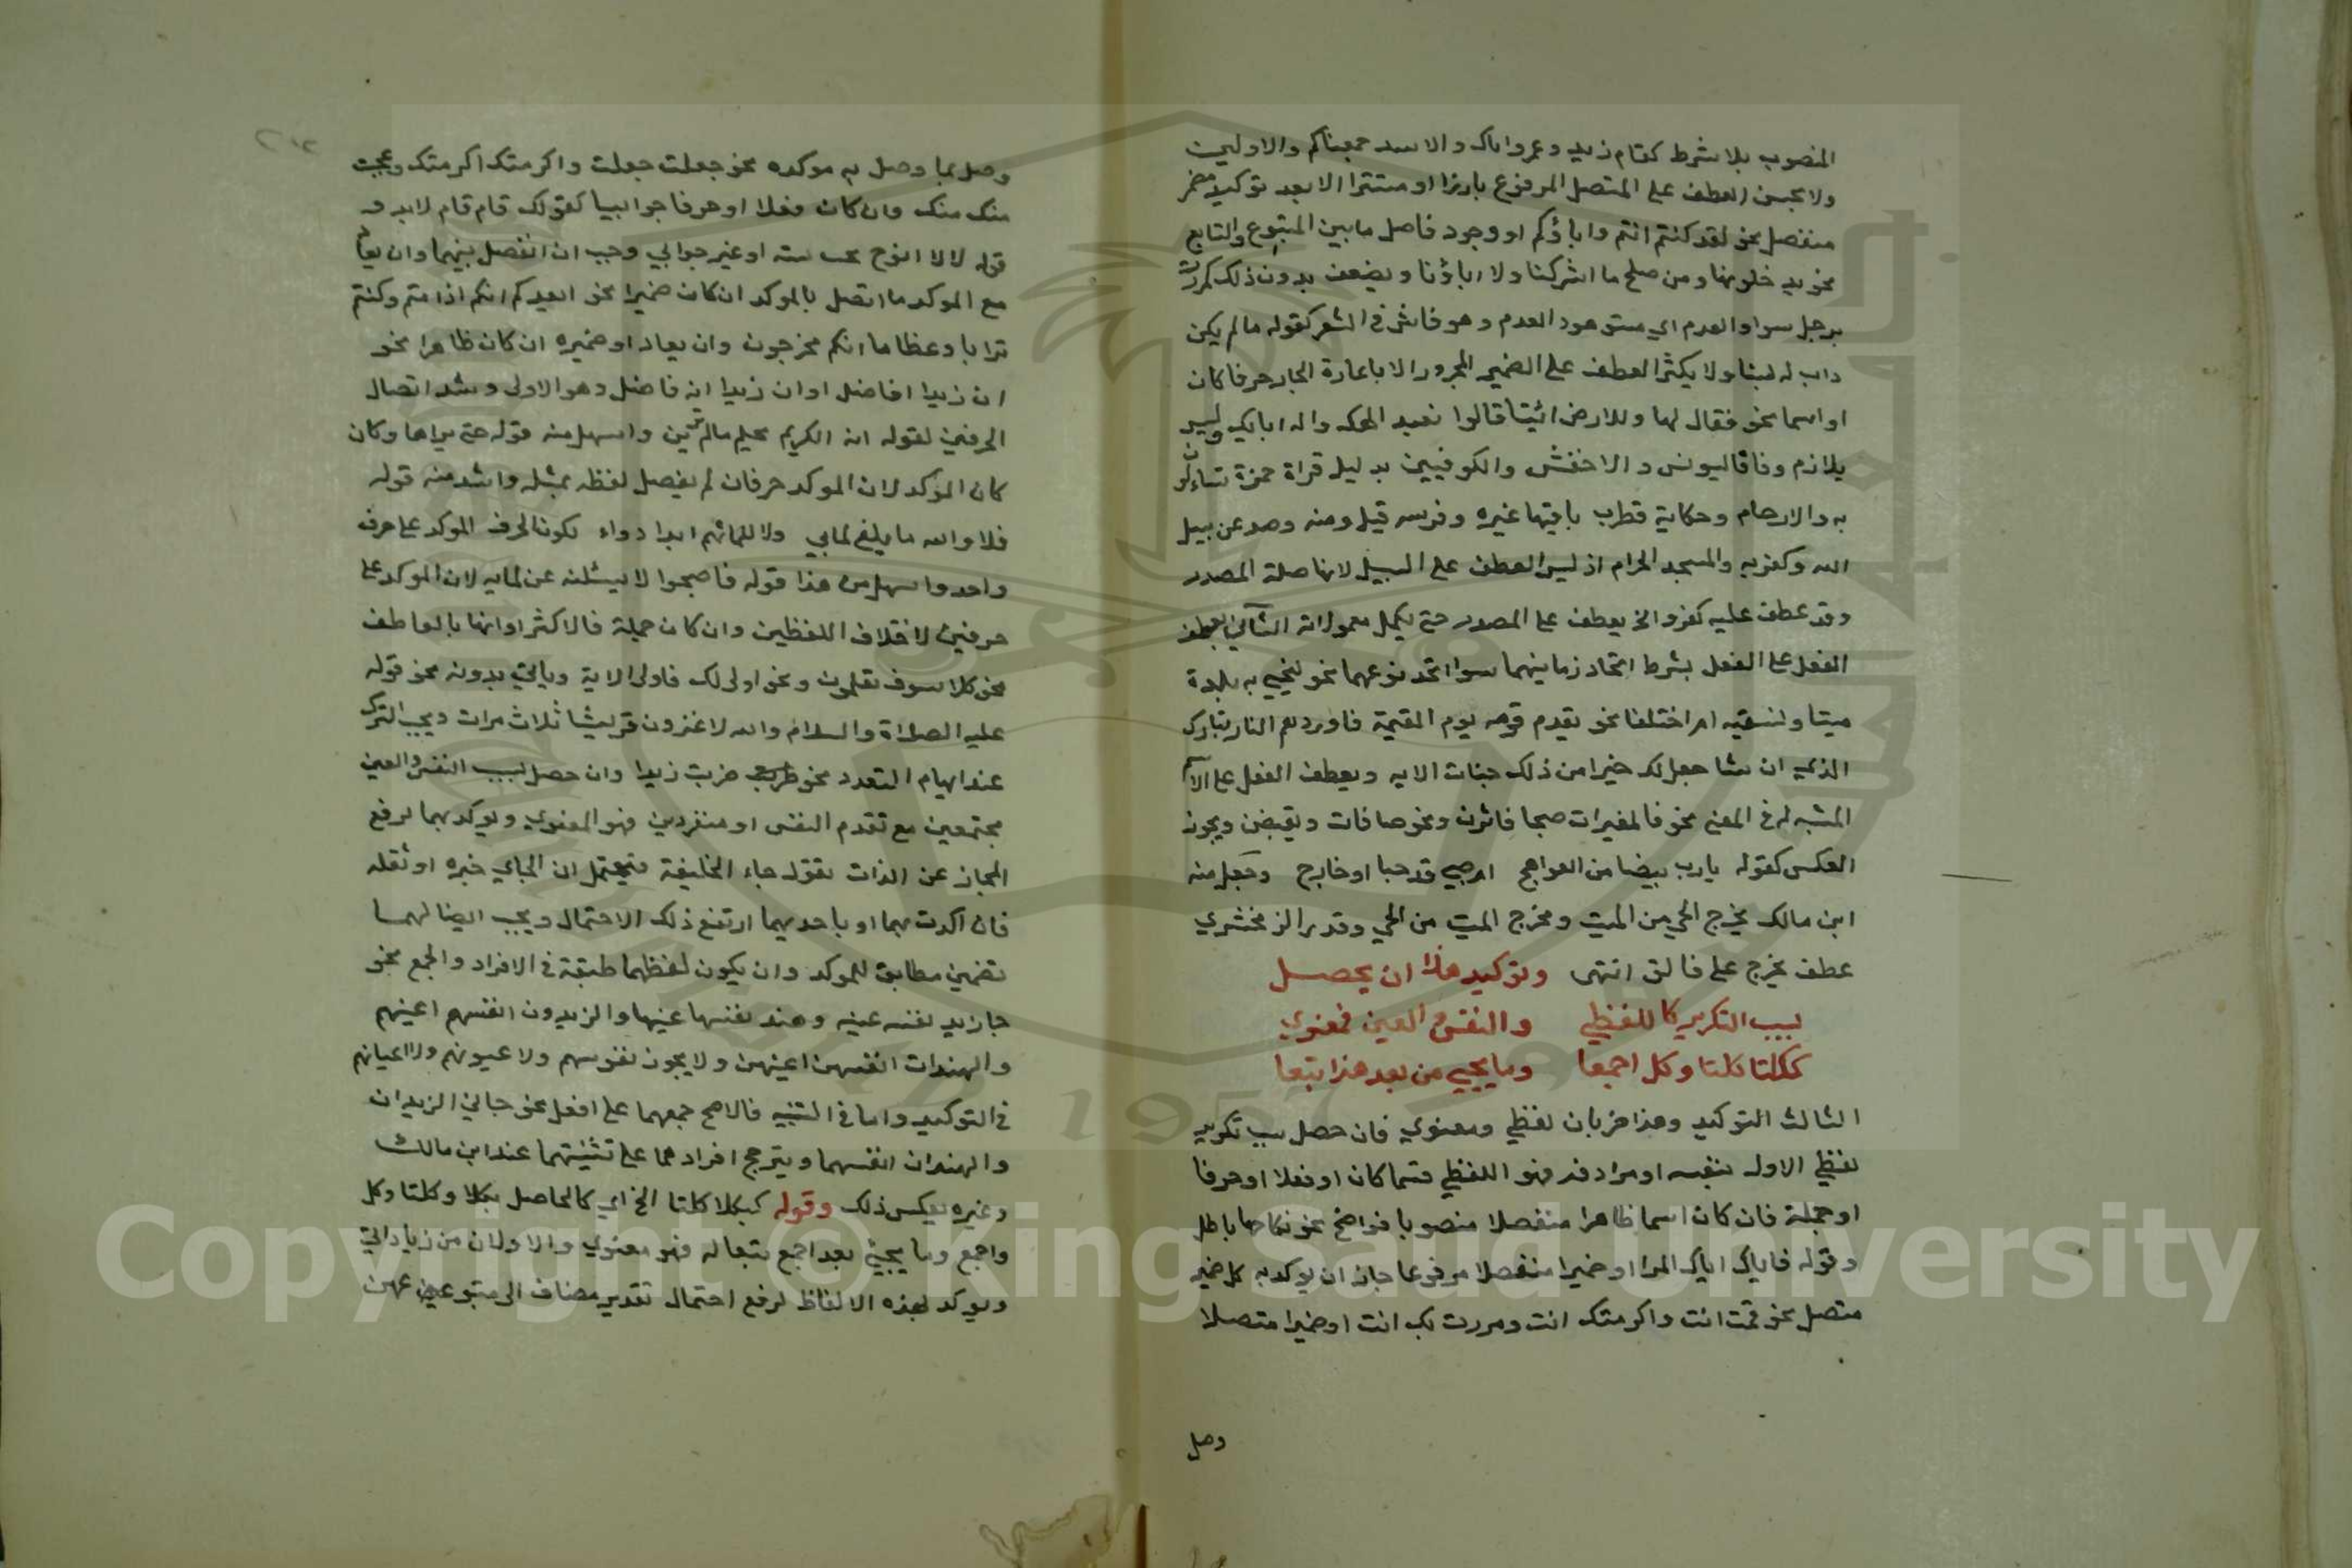 المنصوب بلا شرط كقام زيد وعمرو واياك والاسد جمعناكم والاولين
ولا يحسن العطف على المتصل المرفوع بارزا او مستترا الا بعد توكيد بضمير
منفصل نحو لقد كنتم انتم واباؤكم او وجود فاصل ما بين المتبوع والتابع
نحو يدخلونها ومن صلح ما اشركنا ولا اباؤنا ويضعف بدون ذلك كمررت
برجل سوا والعدم اي مستو هو والعدم وهو فاش في الشعر كقوله ما لم يكن
واب له لينا ولا يكثر العطف على الضمير المجرور الا باعادة الجار حرفا كان
او اسما نحو فقال لها وللارض ائتيا قالوا نعبد الهك واله ابايك وليس
بلازم وفاقا ليونس والاخفش والكوفيين بدليل قراة حمزة تساءلون
به والارحام وحكاية قطرب ما فيها غيره وفرسه قيل ومنه وصد عن سبيل
الله وكفر به والمسجد الحرام اذ ليس العطف على السبيل لانها صلة المصدر
وقد عطف عليه كفر والا يعطف على المصدر حتى يكمل معمولاته الثاني يعطف
الفعل على الفعل بشرط اتحاد زمانيهما سوا اتحد نوعهما نحو لنحيي به بلدة
ميتا ونسقيه ام اختلفا نحو يقدم قومه يوم القيمة فاوردهم النار تبارك
الذي ان شا جعل لك خيرا من ذلك جنات الايه ويعطف الفعل على الاسم
المشبه له في المعنى نحو فالمغيرات صبحا فاثرن ونحو صافات ويقبضن ويجوز
العكس كقوله يا رب بيضا من العواهج ام صبي قد حبا او دارج وجعل منه
ابن مالك يخرج الحي من الميت ومخرج الميت من الحي وقدر الزمخشري
عطف مخرج على فالق انتهى وتوكيد هذا ان يحصل
بسبب التكرير كاللفظي والنفس والعين فمعنوي
ككلتا كلتا وكل اجمعا وما يجيي من بعد هذا تبعا
الثالث التوكيد وهذا ضربان لفظي ومعنوي فان حصل بسبب تكرير
لفظي الاول بنفسه او مرادفه فهو اللفظي قسما كان او فعلا او حرفا
او جملة فان كان اسما ظاهرا منفصلا منصوبا فواضح نحو نكاحها باطل
وقوله فاياك اياك المرا او ضميرا منفصلا مرفوعا جاز ان يوكد به كل ضمير
متصل نحو قمت انت واكرمتك انت ومررت بك انت او ضميرا متصلا
وصل
وصل بما وصل به موكده نحو جعلت جعلت واكرمتك اكرمتك وعجبت
منك منك وان كان فعلا او حرفا جوابيا كقولك قام قام زيد و
قوله لا لا ابوح بحب بثنة او غير جوابي وجب ان انفصل بينهما وان يعاد
مع الموكد ما اتصل بالموكد ان كان ضميرا نحو ايعدكم انكم اذا متم وكنتم
ترابا وعظاما انكم مخرجون وان يعاد او ضميره ان كان ظاهرا نحو
ان زيدا فاضل او ان زيدا انه فاضل وهو الاولى وشد اتصال
الحرفين كقوله ان ان الكريم يحلم ما لم يرين واسهل منه قوله حتى تراها وكان
كان الموكد لان الموكد حرفان لم يفصل لفظه بمثله واشد منه قوله
فلا والله ما يلفى لما بي ولا للما بهم ابدا دواء لكون الحرف الموكد على حرف
واحد واسهل من هذا قوله فاصبحوا لا يسئلنه عن بما به لان الموكد على
حرفين لاختلاف اللفظين وان كان جملة فالاكثر اقترانها بالعاطف
نحو كلا سوف تعلمون ونحو اولى لك فاولى الاية وياتي بدونه نحو قوله
عليه الصلاة والسلام والله لاغزون قريشا ثلاث مرات ويجب الترك
عند ايهام التعدد نحو ضربت ضربت زيدا وان حصل بسبب النفس والعين
مجتمعين مع تقدم النفس او منفردين فهو المعنوي ويوكد بهما لرفع
المجاز عن الذات تقول جاء الخليفة فيحتمل ان الجاي خبره او ثقله
فان اكدت بهما او باحديهما ارتفع ذلك الاحتمال ويجب اتصالهما
بضمير مطابق للموكد وان يكون لفظهما طبقه في الافراد والجمع نحو
جا زيد نفسه عينه وهند نفسها عينها والزيدون انفسهم اعينهم
والهندات انفسهن اعينهن ولا يجوز نفوسهم ولا عيونهم ولا اعيانهم
في التوكيد واما في التثنيه فالاصح جمعهما على افعل نحو جاني الزيدان
والهندان انفسهما ويترجح افرادهما على تثنيتهما عند ابن مالك
وغيره بعكس ذلك وقوله ككلا كلتا الخ اي كالحاصل بكلا وكلتا وكل
واجمع وما يجيئ بعد اجمع تبعا له فهو معنوي والاولان من زياداتي
ويوكد بهذه الالفاظ لرفع احتمال تقدير مضاف الى متبوعهن
Copyright © King Saud University
1957